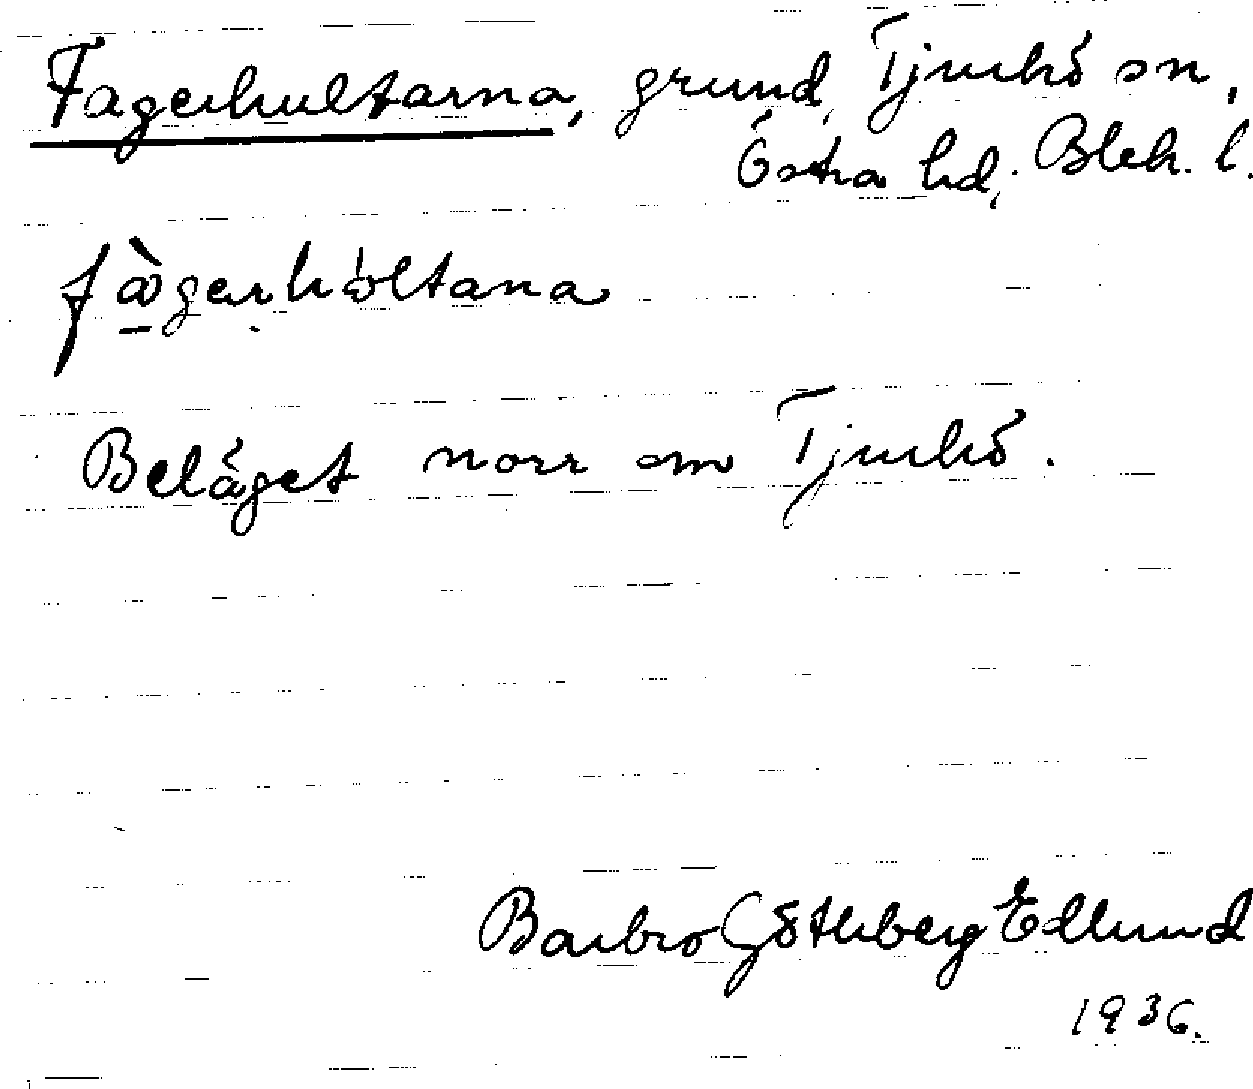 Fagerhultarna, grund, Tjurkö sn,
Östra hd, Blek. l.
fàgerhóltana
Beläget norr om Tjurkö.
Barbro Götheberg Edlund
1936.